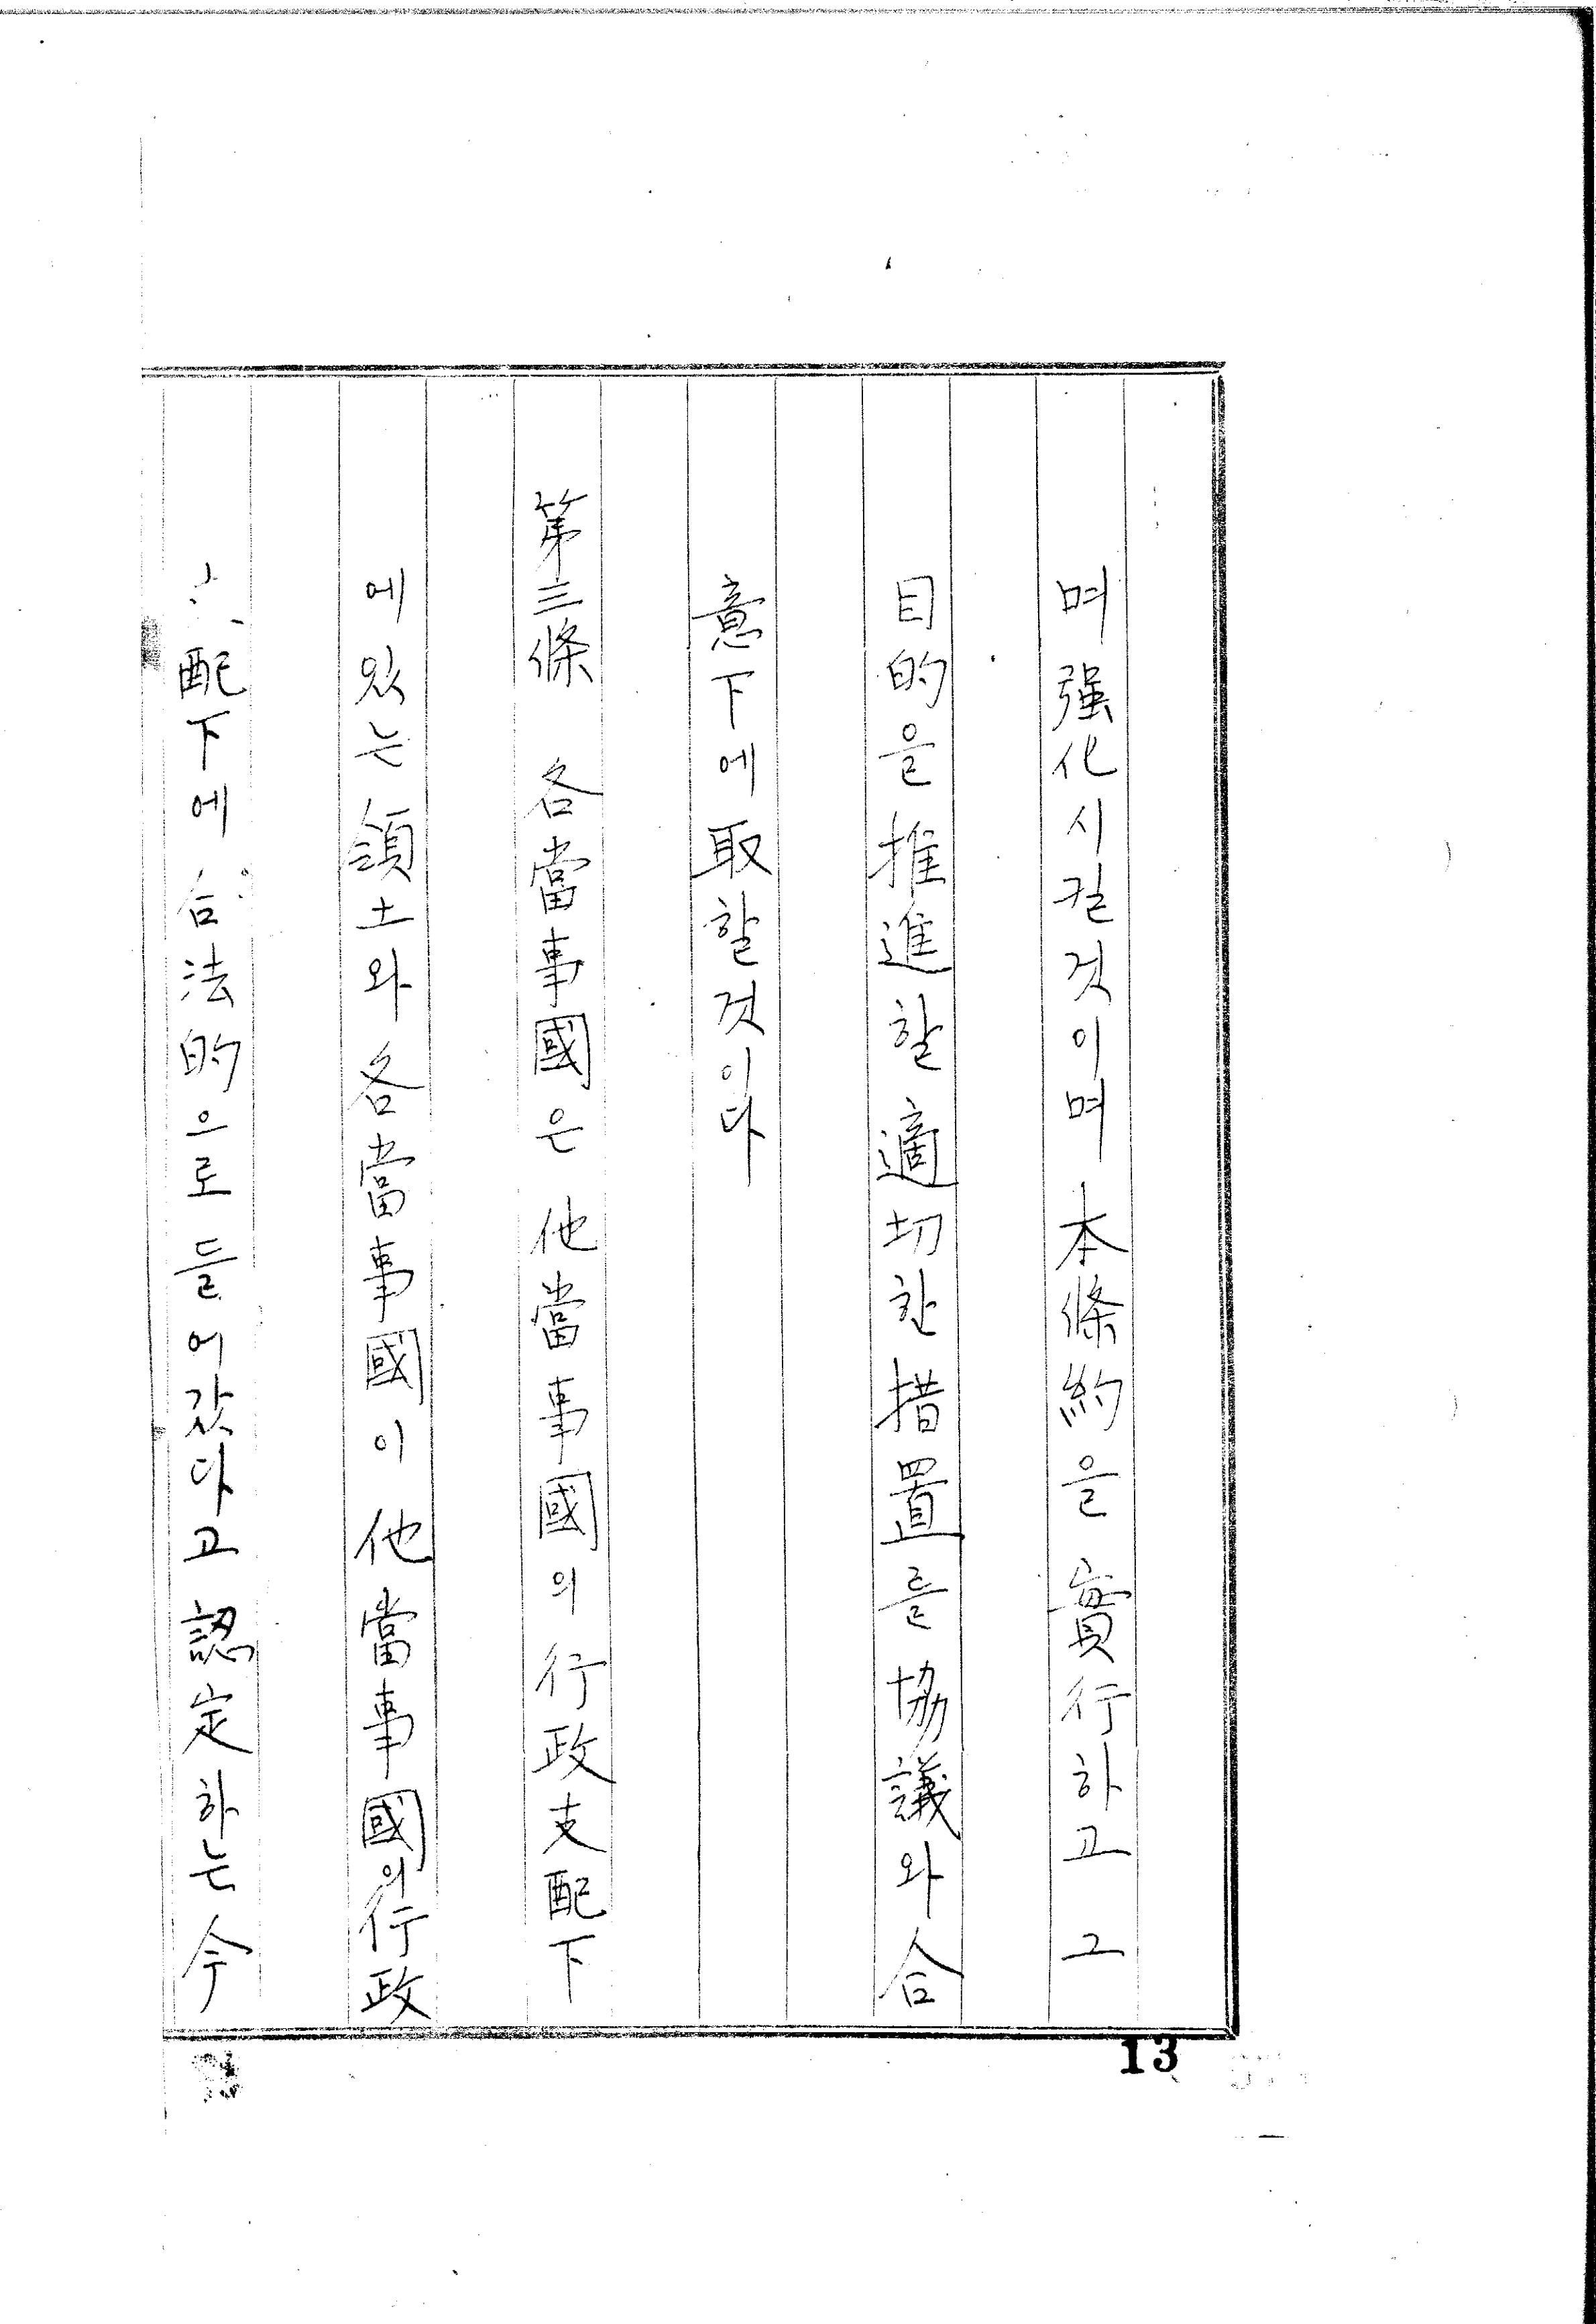 며 强化시킬것이며 本條約을 實行하고 그
目的을 推進할 適切한 措置를 協議와 合
意下에 取할것이다
第三條 各當事國은 他當事國의 行政支配下
에 있는 領土와 各當事國이 他當事國의 行政
配下에 合法的으로 들어갔다고 認定하는 今
13